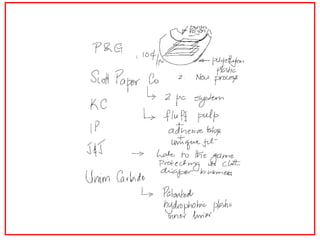 P&G
.10¢/
polyethylene
plastic
2. New process
Scott Paper Co
→ 2 pc system
KC
→ fluff pulp
adhesive
IP
unique
J&J → Late to the game
Protecting cloth
diaper business
Union Carbide
→ Patented
hydrophobic plastic
inner liner